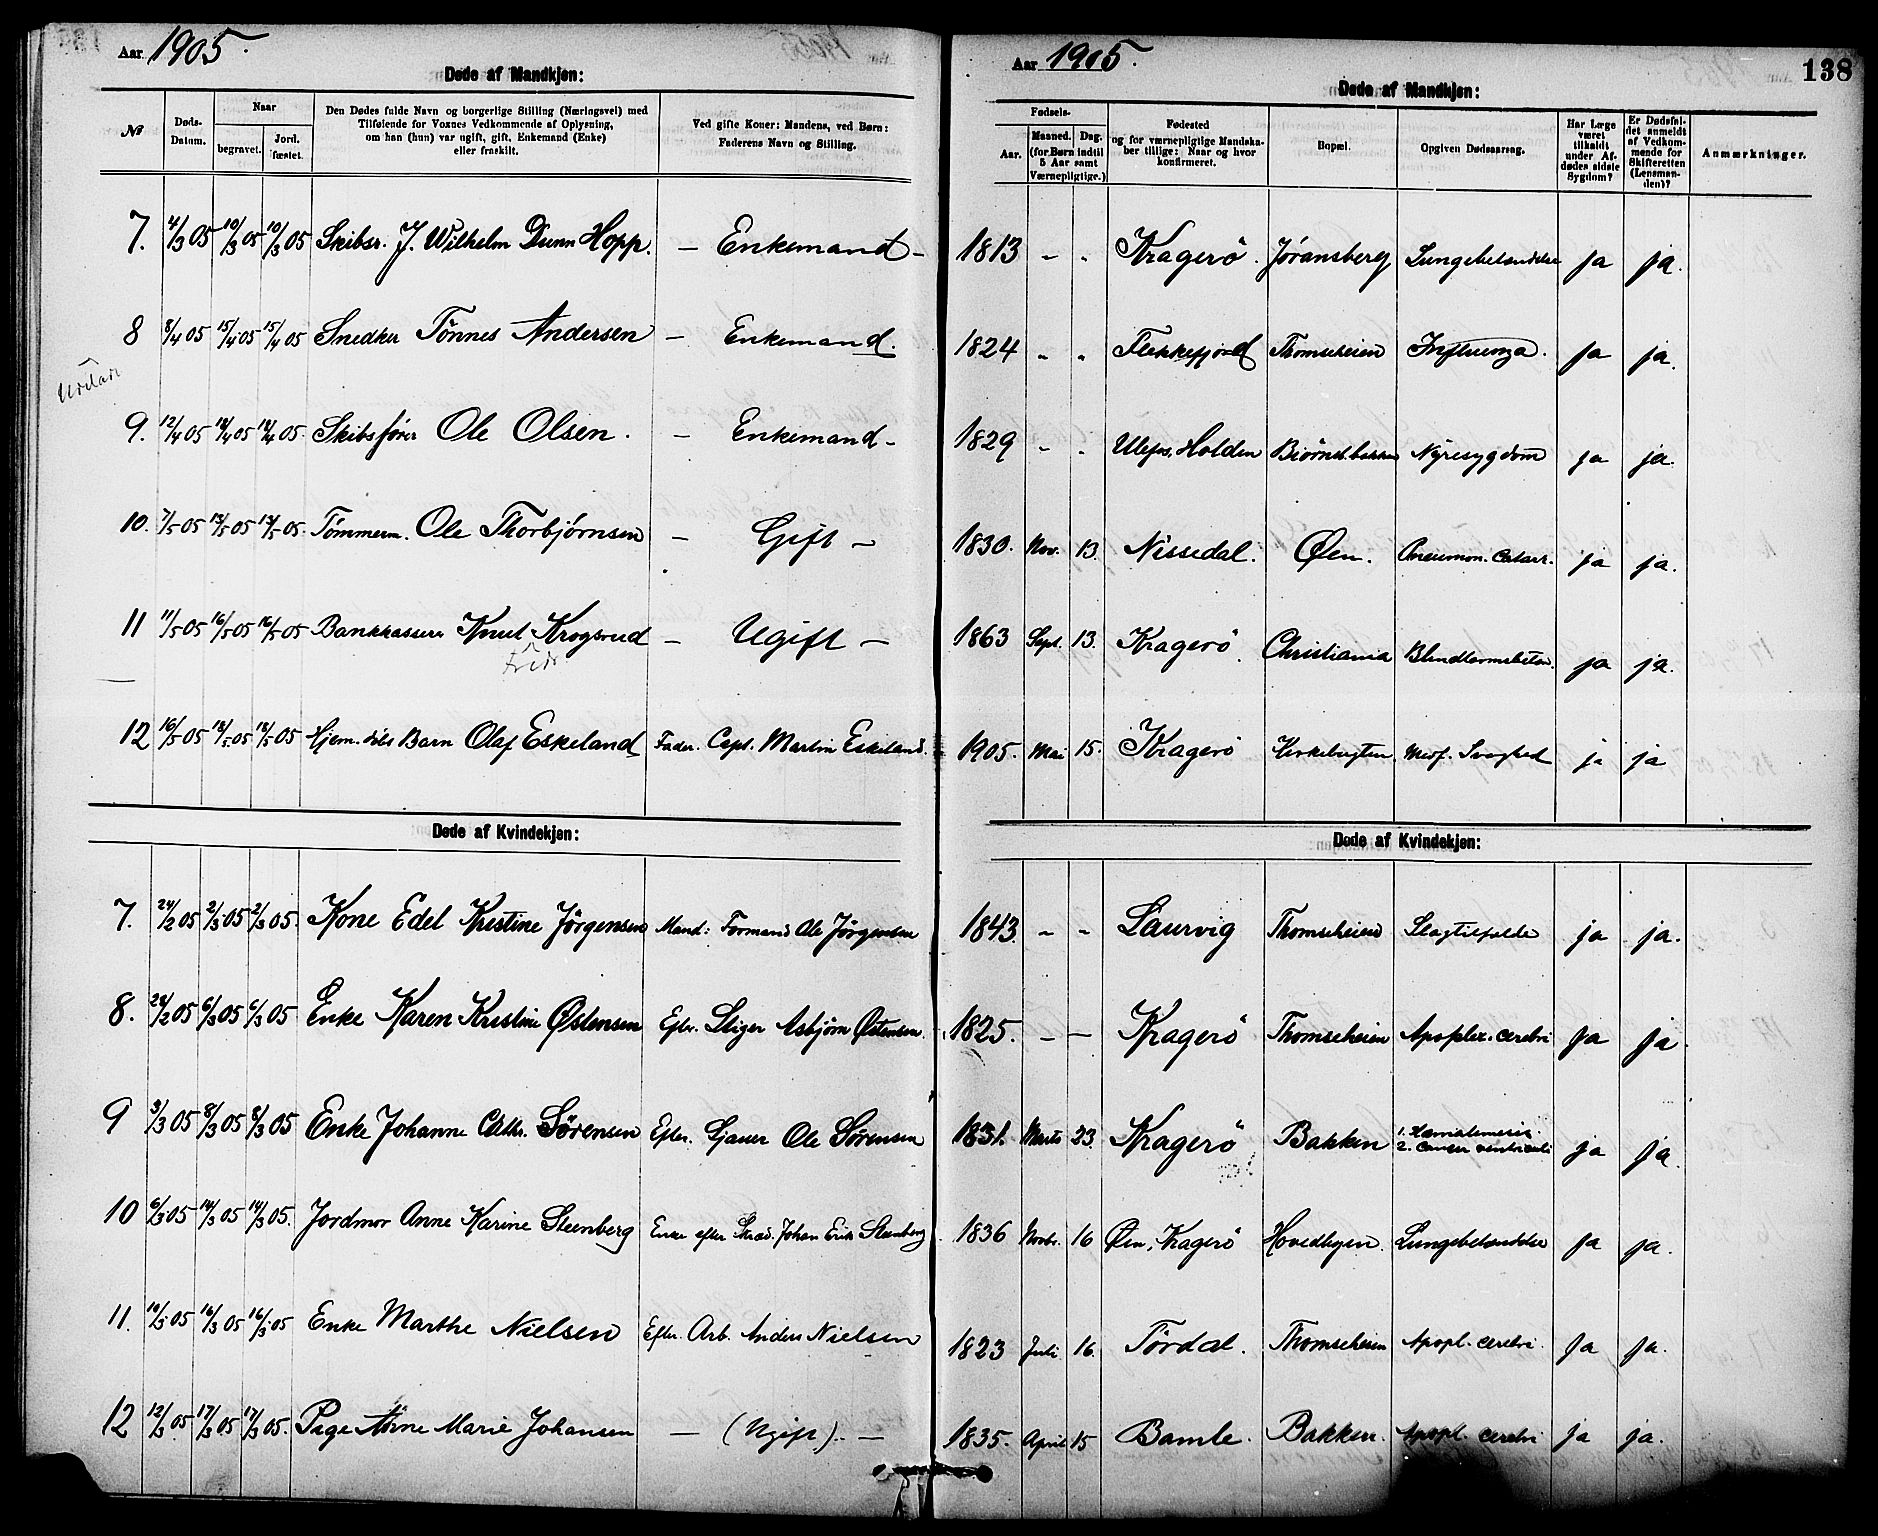 Aar 1905.
Døde af Mandkjøn:
№ Døds-Datum. Naar begravet. Jord-fæstet. Den Dødes fulde Navn og borgerlige Stilling (Næringsvei) med Tilføiende for Voxnes Vedkommende af Oplysning, om han (hun) var ugift, gift, Enkemand (Enke) eller fraskilt. Ved gifte Koner: Mandens, ved Børn: Faderens Navn og Stilling.
7. 4/3 05 10/3 05 10/3 05 Skibsr. J. Wilhelm Dunn Hopp. – Enkemand –
8 8/4 05 15/4 05 15/4 05 Snedker Tönnes Andersen – Enkemand.
9. 12/4 05 18/4 05 18/4 05. Skibsfører Ole Olsen. – Enkemand –
10. 7/5 05 13/5 05 13/5 05. Tömmerm. Ole Thorbjørnsen – Gift –
11 11/5 05 16/5 05 16/5 05 Bankkasserer Knut Krogsrud – Ugift –
12 16/5 05 18/5 05 18/5 05 Hjem.døbt Barn Olaf Eskeland Fader. Capt. Martin Eskeland.
Døde af Kvindekjøn:
7. 24/2 05 2/3 05 2/3 05. Kone Edel Kristine Jörgensen Mand: Formand Ole Jörgensen
8. 28/2 05 6/3 05 6/3 05 Enke Karen Kristine Østensen Efter. Sliger Asbjörn Østensen
9 3/3 05 8/3 05 8/3 05 Enke Johanne Cathr. Sörensen Efter. Gjauer Ole Sörensen
10 6/3 05 14/3 05 14/3 05. Jordmor Anne Karine Steenberg Enke efter Skræd. Johan Erik Steenberg
11. 10/3 05 16/3 05 16/3 05 Enke Marthe Nielsen Efter. Arb. Anders Nielsen
12 12/3 05 17/3 05 17/3 05. Pige Anne Marie Johansen – (Ugift). –
Aar 1905.
138
Døde af Mandkjøn:
Fødsels- Aar. Maaned. Dag. (for Børn indtil 5 Aar samt Værnepligtige.) Fødested og for værnepligtige Mandskaber tillige: Naar og hvor konfirmeret. Bopæl. Opgiven Dødsaarsag. Har Læge været tilkaldt under Afdødes sidste Sygdom? Er Dødsfaldet anmeldt af Vedkommende for Skifteretten (Lensmanden)? Anmærkninger.
1813 " " Kragerö. Jøransberg Lungebetændelse ja ja.
1824 " " Flekkefjord Thomseheien Influenza. ja ja.
1829 " " Ulefos, Holden Biörnsbakken Nyresygdom ja ja.
1830. Nov. 13. Nissedal. Øen. Pneumon. Catarr. ja ja.
1863 Sept. 13. Kragerö. Christiania Blindtarmsbetæn. ja ja.
1905. Mai 15. Kragerö Kirkebugten. Medf. Svaghed ja ja
Døde af Kvindekjøn:
1843. – – Laurvig Thomseheien Slagtilfælde ja ja.
1825. – – Kragerö Thomseheien Apoplex. cerebri ja ja.
1831. Marts 23. Kragerö Bakken 1. Hæmatemesis. 2. Cancer ventriculi ja ja.
1836 Novbr. 16 Øen, Kragerö Hovedbyen. Lungebetændelse ja ja.
1823 Juli 16. Tördal. Thomseheien Apopl. cerebri. ja ja.
1835. April 15 Bamle. Bakken. Apopl. cerebri ja ja.